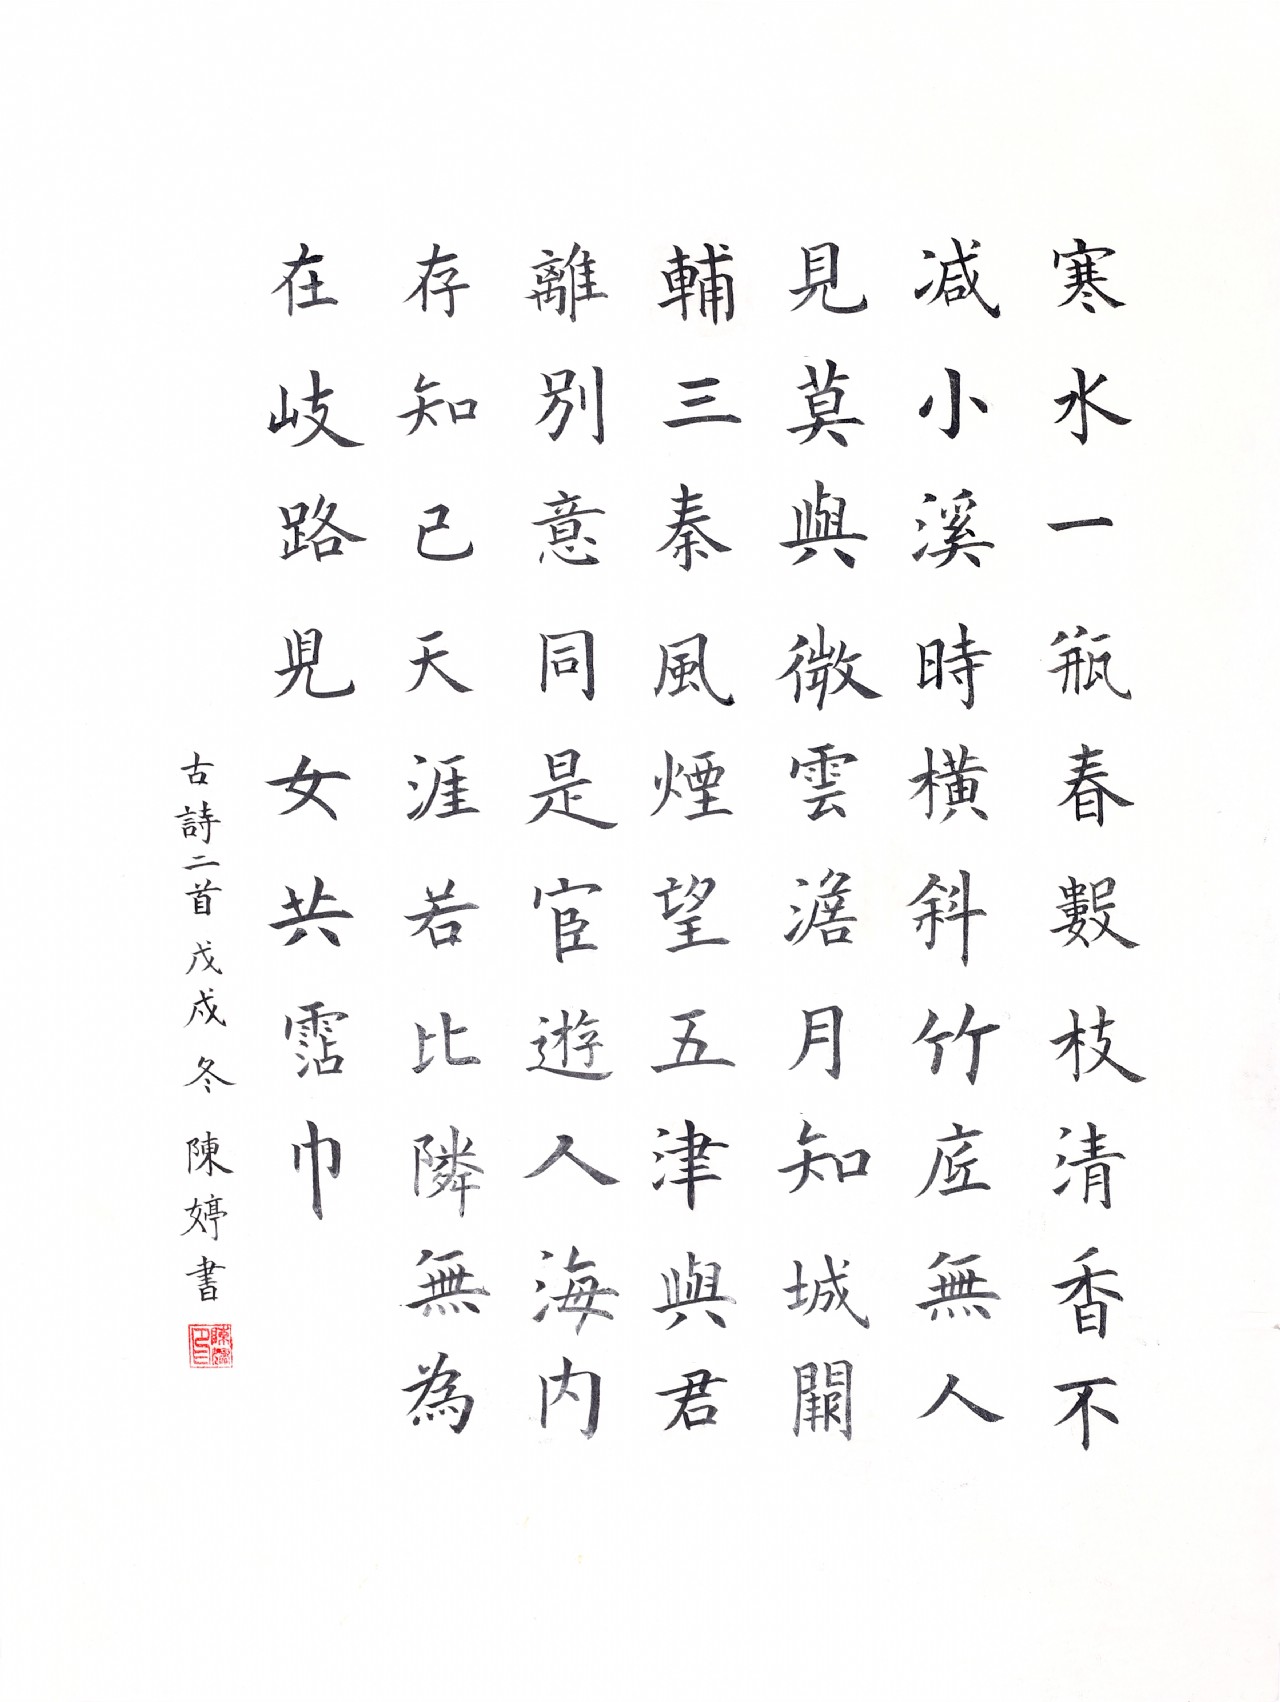 寒水一瓶春數枝清香不
減小溪時橫斜竹底無人
見莫與微雲澹月知城闕
輔三秦風煙望五津與君
離別意同是宦遊人海內
存知己天涯若比隣無為
在岐路兒女共霑巾
古詩二首 戊戌冬 陳婷書